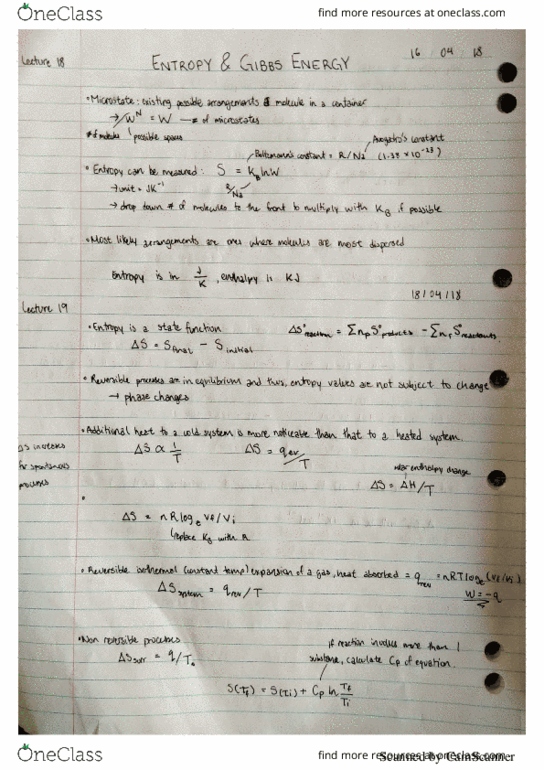 OneClass
find more resources at oneclass.com
Lecture 18
ENTROPY & GIBBS ENERGY
16 04 18
• Microstate: existing possible arrangements of molecule in a container
→ W^N = W — # of microstates
# of molecules possible spaces
Avogadro's constant
Boltzmann's constant = R/Na (1.38 × 10^-23)
• Entropy can be measured: S = K_B lnW
→ unit = JK^-1
R/Na
→ drop down # of molecules to the front to multiply with K_B if possible
• Most likely arrangements are ones where molecules are most dispersed
Entropy is in J/K, enthalpy is KJ
18/04/18
Lecture 19
• Entropy is a state function
ΔS°reaction = Σn_p S°products - Σn_r S°reactants
ΔS = S final - S initial
• Reversible processes are in equilibrium and thus, entropy values are not subject to change
→ phase changes
• Additional heat to a cold system is more noticeable than that to a heated system.
ΔS increases
for spontaneous
processes
ΔS ∝ 1/T
ΔS = qrev/T
enthalpy change
ΔS = ΔH/T
•
ΔS = nR log_e Vf/Vi
replace K_B with R
• Reversible isothermal (constant temp) expansion of a gas, heat absorbed = q_rev = nRT log_e (Vf/Vi)
W = -q
ΔS system = q_rev/T
• Non reversible processes
ΔS surr = q/T
if reaction involves more than 1
substance, calculate Cp of equation.
S(Tf) = S(Ti) + Cp ln Tf/Ti
OneClass
find more resources at oneclass.com
Scanned by CamScanner